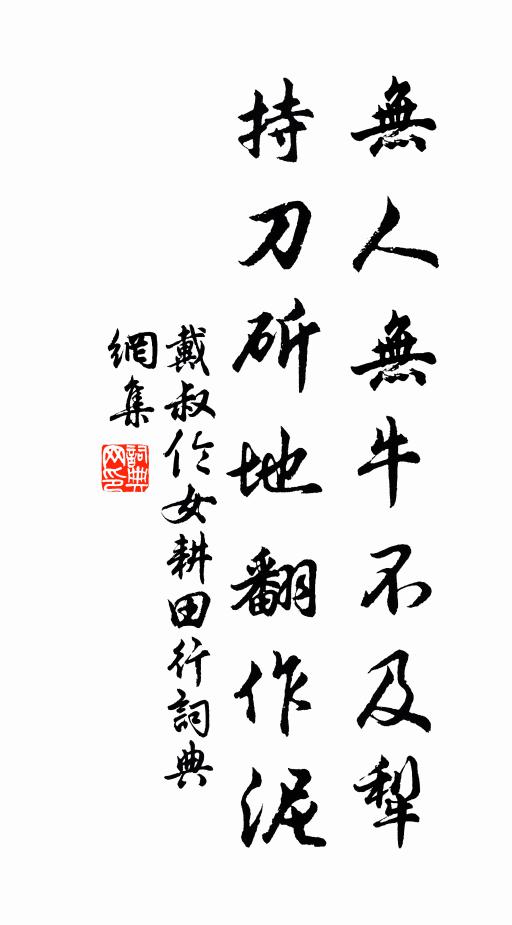 無人無牛不及犁
持刀斫地翻作泥
戴叔伦女耕田行詞典
網集
詞典
网印